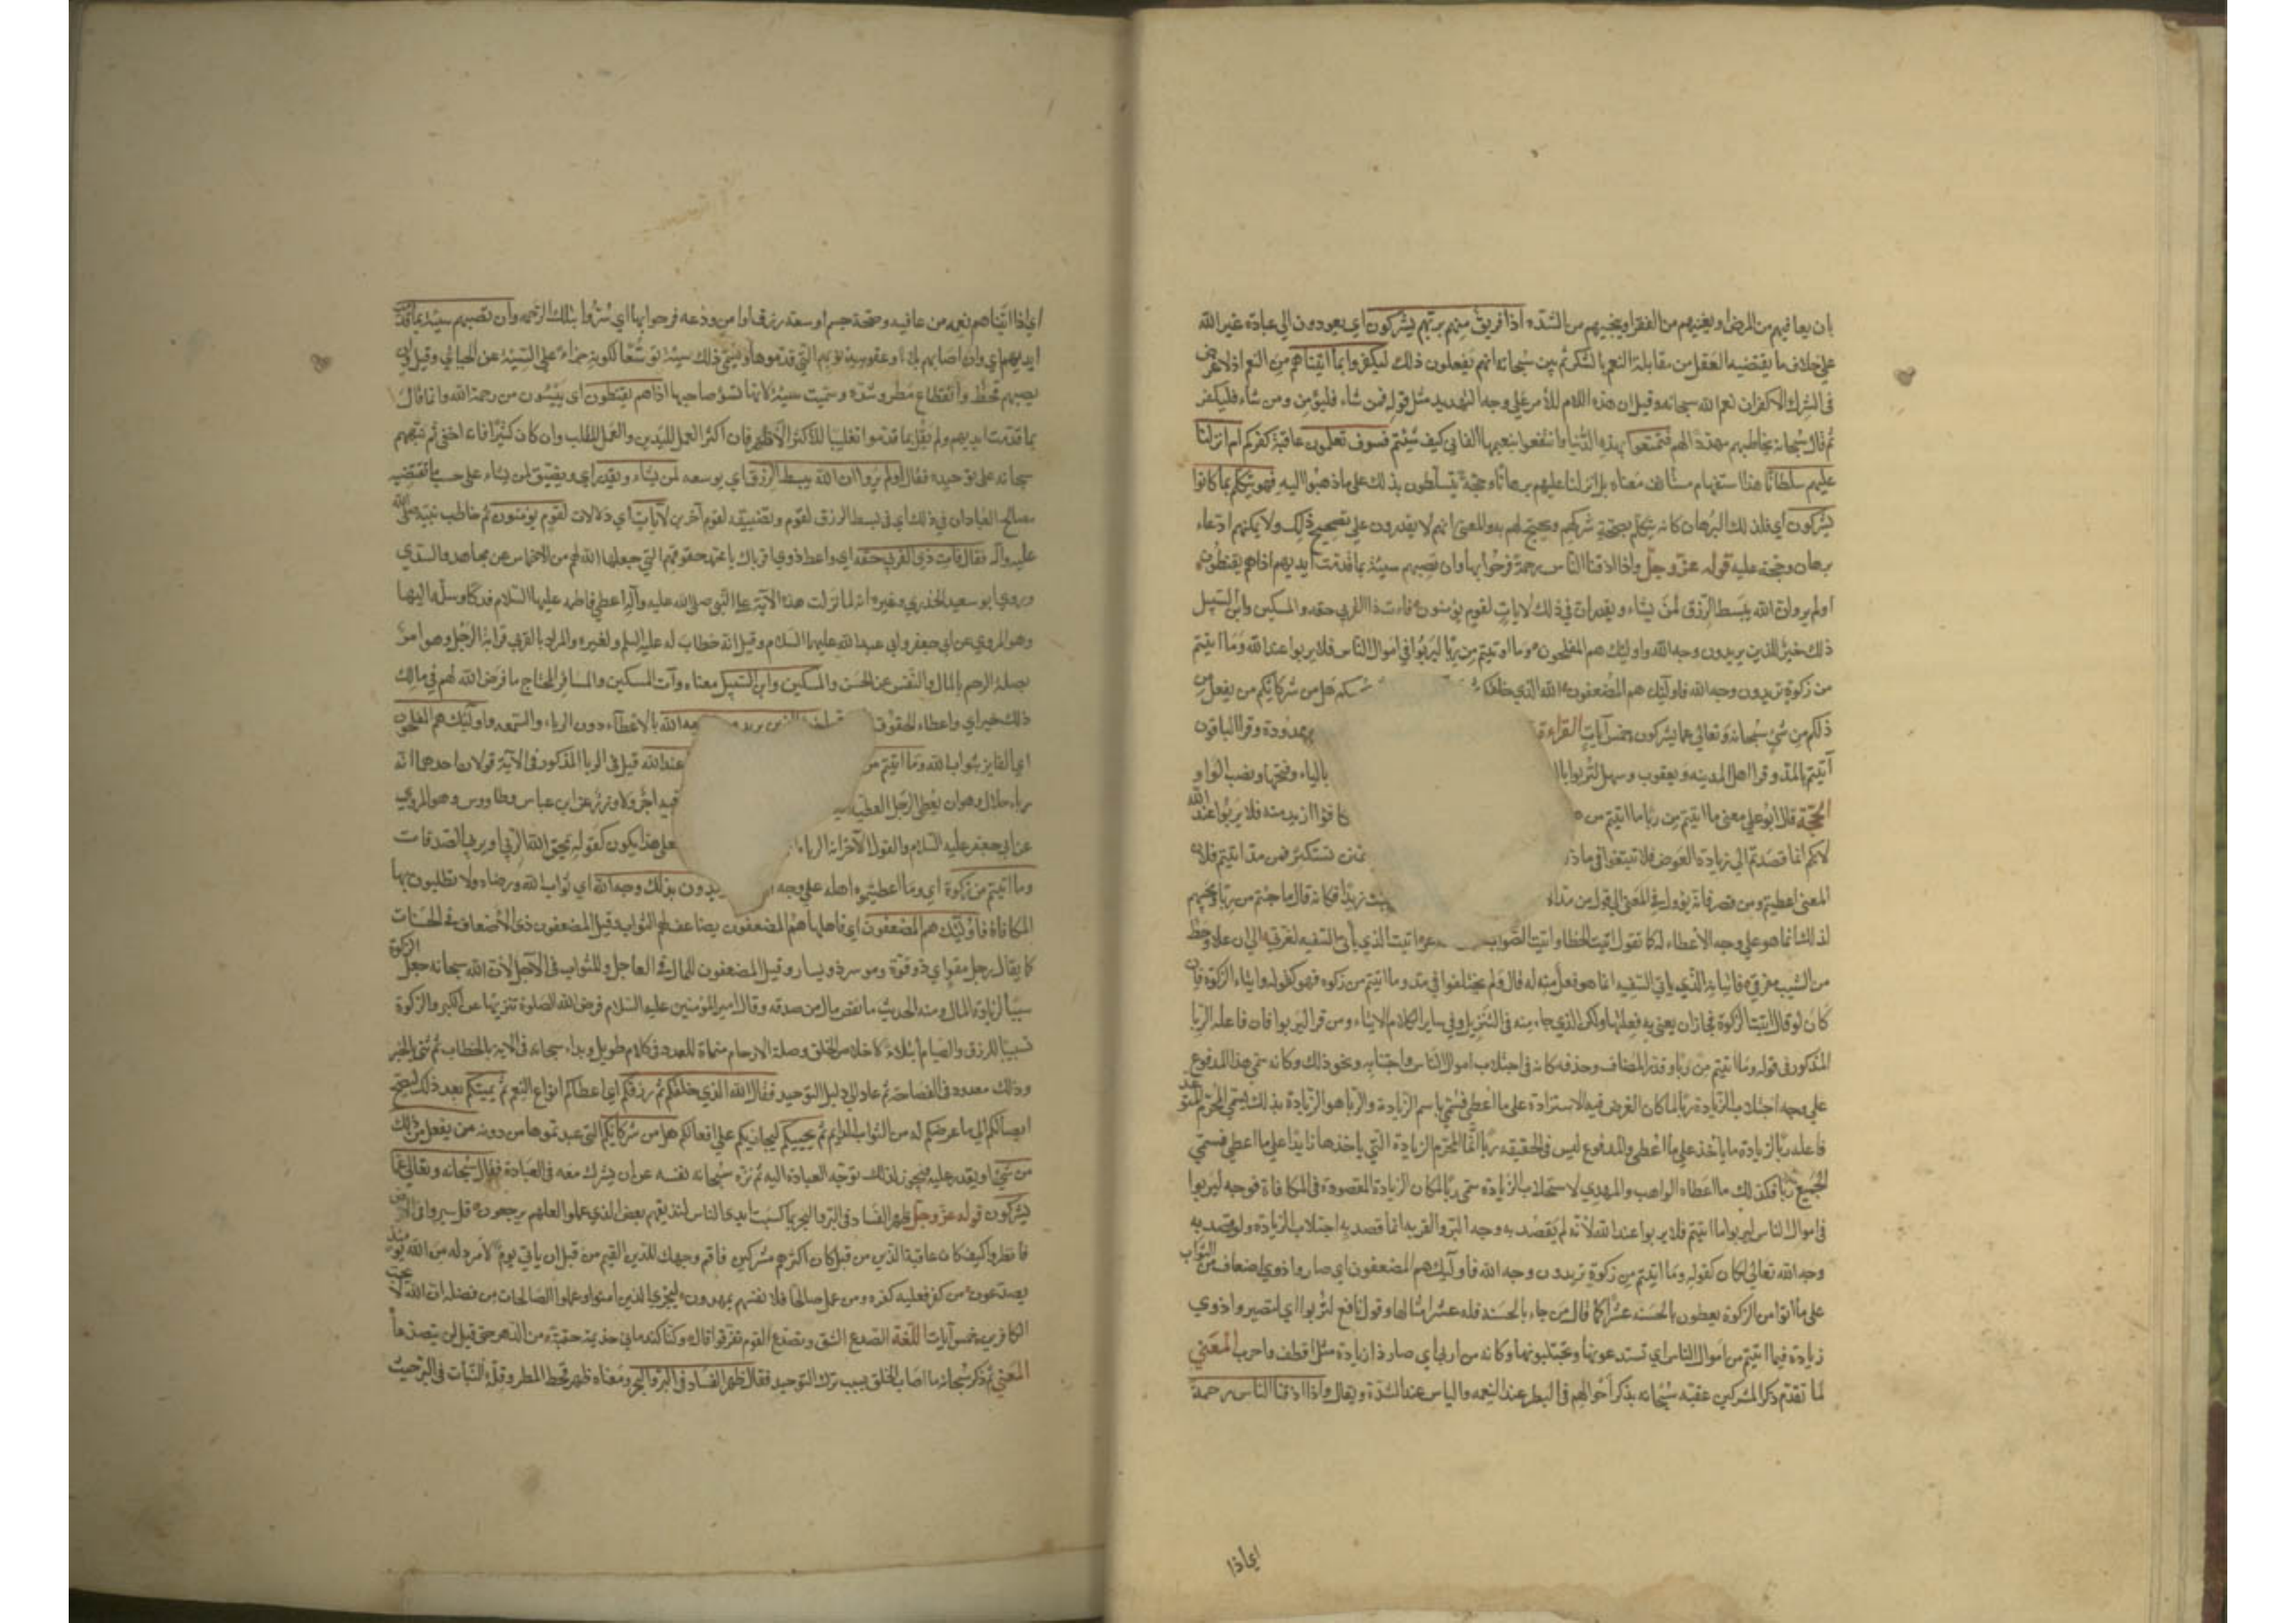 بان يعافيهم من المرض او يغنيهم من الفقر او ينجيهم من الشدة اذا فريق منهم بربهم يشركون اي يعودون الي عبادة غير الله
علي خلاف ما يقتضيه العقل من مقابلة النعم بالشكر ثم بين سبحانه انهم يفعلون ذلك ليكفروا بما اتيناهم من النعم اذ لا غرض
في الشرك الا كفران نعم الله سبحانه وقيل ان هذه اللام للأمر علي وجه التهديد مثل قوله فمن شاء فليؤمن ومن شاء فليكفر
ثم قال سبحانه يخاطبهم مهددا لهم فتمتعوا بهذه الدنيا وانتفعوا بنعيمها الفاني كيف شئتم فسوف تعلمون عاقبة كفركم ام انزلنا
عليهم سلطانا هذا استفهام مستأنف معناه بل انزلنا عليهم برهانا وحجة يتسلطون بذلك علي ما ذهبوا اليه فهو يتكلم بما كانوا
يشركون اي فلذلك البرهان كانه يتكلم بصحة شركهم ويحتج لهم به والمعني انهم لا يقدرون علي تصحيح ذلك ولا يمكنهم ادعاء
برهان وحجة عليه قوله عز وجل واذا اذقنا الناس رحمة فرحوا بها وان تصبهم سيئة بما قدمت ايديهم اذا هم يقنطون
اولم يروا ان الله يبسط الرزق لمن يشاء ويقدر ان في ذلك لايات لقوم يؤمنون فات ذا القربي حقه والمسكين وابن السبيل
ذلك خير للذين يريدون وجه الله واولئك هم المفلحون وما اوتيتم من ربا ليربوا في اموال الناس فلا يربوا عند الله وما اتيتم
من زكوة تريدون وجه الله فاولئك هم المضعفون الله الذي خلقكم هل من شركائكم من يفعل من
ذلكم من شيء سبحانه وتعالي عما يشركون خمس آيات القراءة ممدودة وقرا الباقون
آتيتم بالمد وقرا اهل المدينة ويعقوب وسهل لتربوا بالتاء بالياء وفتحها ونصب الواو
الحجة قال ابو علي معني ما اتيتم من ربا ما اتيتم من كافؤا ازيد منه فلا يربوا عند الله
لانكم انما قصدتم الي زيادة العوض فلا تبتغوا في ماذ تمنن تستكثر فمن مد اتيتم فلان
المعني اعطيتم ومن قصر فانه يؤول في المعني الي قول من مد زيدا فكانه قال ما جئتم من ربا ومجيئهم
لذلك انما هو علي وجه الاعطاء له كما تقول اتيت الخطا واتيت الصواب اتيت الذي يأتي السفيه لغرتي الي ان علا وخط
من الشيب مفرقي فاتيانه الذي ياتي السفيه انما هو فعل منه له قال ولم يختلفوا في مد وما اتيتم من زكوه فهو كقوله وايتاء الزكوة فان
كان لو قال اتيت الزكوة لجاز ان يعني به فعلتها ولكن الذي جاء منه في التنزيل وفي ساير الكلام الايتاء ومن قرا ليربوا فان فاعله الربا
المذكور في قوله وما اتيتم من ربا وقدر المضاف وحذفه كانه في اجتلاب اموال الناس واجتنابه ونحو ذلك وكانه سمي هذا المدفوع
علي وجه اجتلاب الزيادة ربا لما كان الغرض فيه الاستزادة علي ما اعطي فسمي باسم الزيادة والربا هو الزيادة بذلك يسمي المحرم المتوعد
فاعله ربا لزيادة ما ياخذ علي ما اعطي والمدفوع ليس في الحقيقه ربا انما المحرم الزيادة التي ياخذها زايدا علي ما اعطي فسمي
الجميع ربا فكذلك ما اعطاه الواهب والمهدي لاستجلاب الزيادة سمي ربا لمكان الزيادة المقصودة في المكافاة فوجه ليربوا
في اموال الناس ليربوا ما اتيتم فلا يربوا عند الله لأنه لم يقصد به وجه البر والقربة انما قصد به اجتلاب الزيادة ولو قصد به
وجه الله تعالي لكان كقوله وما اتيتم من زكوة تريدون وجه الله فاولئك هم المضعفون اي صاروا ذوي اضعاف من الثواب
علي ما اتوا من الزكوة يعطون بالحسنة عشرا كما قال من جاء بالحسنة فله عشر امثالها وقول نافع لتربوا اي لتصيروا ذوي
زيادة فيما اتيتم من اموال الناس اي تستدعونها وتجتلبونها وكانه من اربي اي صار ذا زيادة مثل اقطف واجرب المعني
لما تقدم ذكر المشركين عقبه سبحانه بذكر احوالهم في البطر عند النعمه والياس عند الشدة وقال واذا اذقنا الناس رحمة
اي اذا
اي اذا اتيناهم نعمه من عافيه وصحة جسم او سعة رزق او امن ودعه فرحوا بها اي سروا بتلك الرحمه وان تصبهم سيئة بما قدمت
ايديهم اي وان اصابهم بلاء وعقوبة بذنوبهم التي قدموها وسمي ذلك سيئة توسعا لكونه جزاء علي السيئة عن الجبائي وقيل ان
يصبهم قحط وانقطاع مطر وشدة وسميت سيئة لانها تسؤ صاحبها اذا هم يقنطون اي ييئسون من رحمة الله وانما قال
بما قدمت ايديهم ولم يقل بما قدموا تغليبا للاكثر الاظهر فان اكثر العمل لليدين والعمل للقلب وان كان كثيرا فانه اخفي ثم نبههم
سبحانه علي توحيده فقال اولم يروا ان الله يبسط الرزق اي يوسعه لمن يشاء ويقدر اي ويضيق لمن يشاء علي حسب ما تقتضيه
مصالح العباد ان في ذلك اي في بسط الرزق لقوم وتضييقه لقوم آخرين لايات اي دلالات لقوم يؤمنون ثم خاطب نبيه صلي الله
عليه وآله فقال فات ذي القربي حقه اي واعط ذوي قرباك يا محمد حقوقهم التي جعلها الله لهم من الاخماس عن مجاهد والسدي
وروي ابو سعيد الخدري وغيره انه لما نزلت هذه الآية علي النبي صلي الله عليه وآله اعطي فاطمه عليها السلام فدكا وسلمه اليها
وهو المروي عن ابي جعفر وابي عبد الله عليهما السلام وقيل انه خطاب له عليه السلم ولغيره والمراد بالقربي قرابة الرجل وهو امر
بصلة الرحم بالمال والنفس عن الحسن والمسكين وابن السبيل معناه وآت المسكين والمسافر المحتاج ما فرض الله لهم في مالك
ذلك خير اي واعطاء الحقوق خير للذين يريدون وجه الله بالاعطاء دون الرياء والسمعه واولئك هم المفلحون
اي الفايزون بثواب الله وما اتيتم من عند الله قيل في الربا المذكور في الآية قولان احدهما انه
رباء حلال وهو ان يعطي الرجل العطية فيه اجر ولا وزر عن ابن عباس وطاووس وهو المروي
عن ابي جعفر عليه السلام والقول الآخر انه الربا فعلي هذا يكون كقوله يمحق الله الربا ويربي الصدقات
وما اتيتم من زكوة اي وما اعطيتموه اهله علي وجه تريدون بذلك وجه الله اي ثواب الله ورضاه ولا تطلبون بها
المكافاة فاولئك هم المضعفون اي فاهلها هم المضعفون يضاعف لهم الثواب وقيل المضعفون ذوي الاضعاف في الحسنات
كما يقال رجل مقوي اي ذو قوة وموسر ذو يسار وقيل المضعفون للمال في العاجل وللثواب في الآجل لأن الله سبحانه جعل الزكوة
سببا لزيادة المال ومنه الحديث ما نقص مال من صدقه وقال امير المؤمنين عليه السلام فرض الله الصلوة تنزيها عن الكبر والزكوة
تسبيبا للرزق والصيام ابتلاء لاخلاص الخلق وصلة الارحام منماة للعدد في كلام طويل وبداء سبحانه في الايه بالخطاب ثم ثني بالخبر
وذلك معدود في الفصاحة ثم عاد الي دليل التوحيد فقال الله الذي خلقكم ثم رزقكم اي اعطاكم انواع النعم ثم يميتكم بعد ذلك ليصح
ايصالكم الي ما عرضكم له من الثواب الدايم ثم يحييكم ليجازيكم علي افعالكم هل من شركائكم التي عبدتموها من دونه من يفعل من ذلكم
من شيء او يقدر عليه فيجوز لذلك توجه العبادة اليه ثم نزه سبحانه نفسه عن ان يشرك معه في العبادة فقال سبحانه وتعالي عما
يشركون قوله عز وجل ظهر الفساد في البر والبحر بما كسبت ايدي الناس لنذيقهم بعض الذي عملوا لعلهم يرجعون قل سيروا في الارض
فانظروا كيف كان عاقبة الذين من قبل كان اكثرهم مشركين فاقم وجهك للدين القيم من قبل ان ياتي يوم لا مرد له من الله يومئذ
يصدعون من كفر فعليه كفره ومن عمل صالحا فلانفسهم يمهدون ليجزي الذين امنوا وعملوا الصالحات من فضله ان الله لا يحب
الكافرين خمس آيات اللغة الصدع الشق وتصدع القوم تفرقوا قال وكنا كندماني جذيمة حقبة من الدهر حتي قيل لن يتصدعا
المعني ثم ذكر سبحانه ما اصاب الخلق بسبب ترك التوحيد فقال ظهر الفساد في البر والبحر ومعناه ظهر قحط المطر وقلة النبات في البر حيث